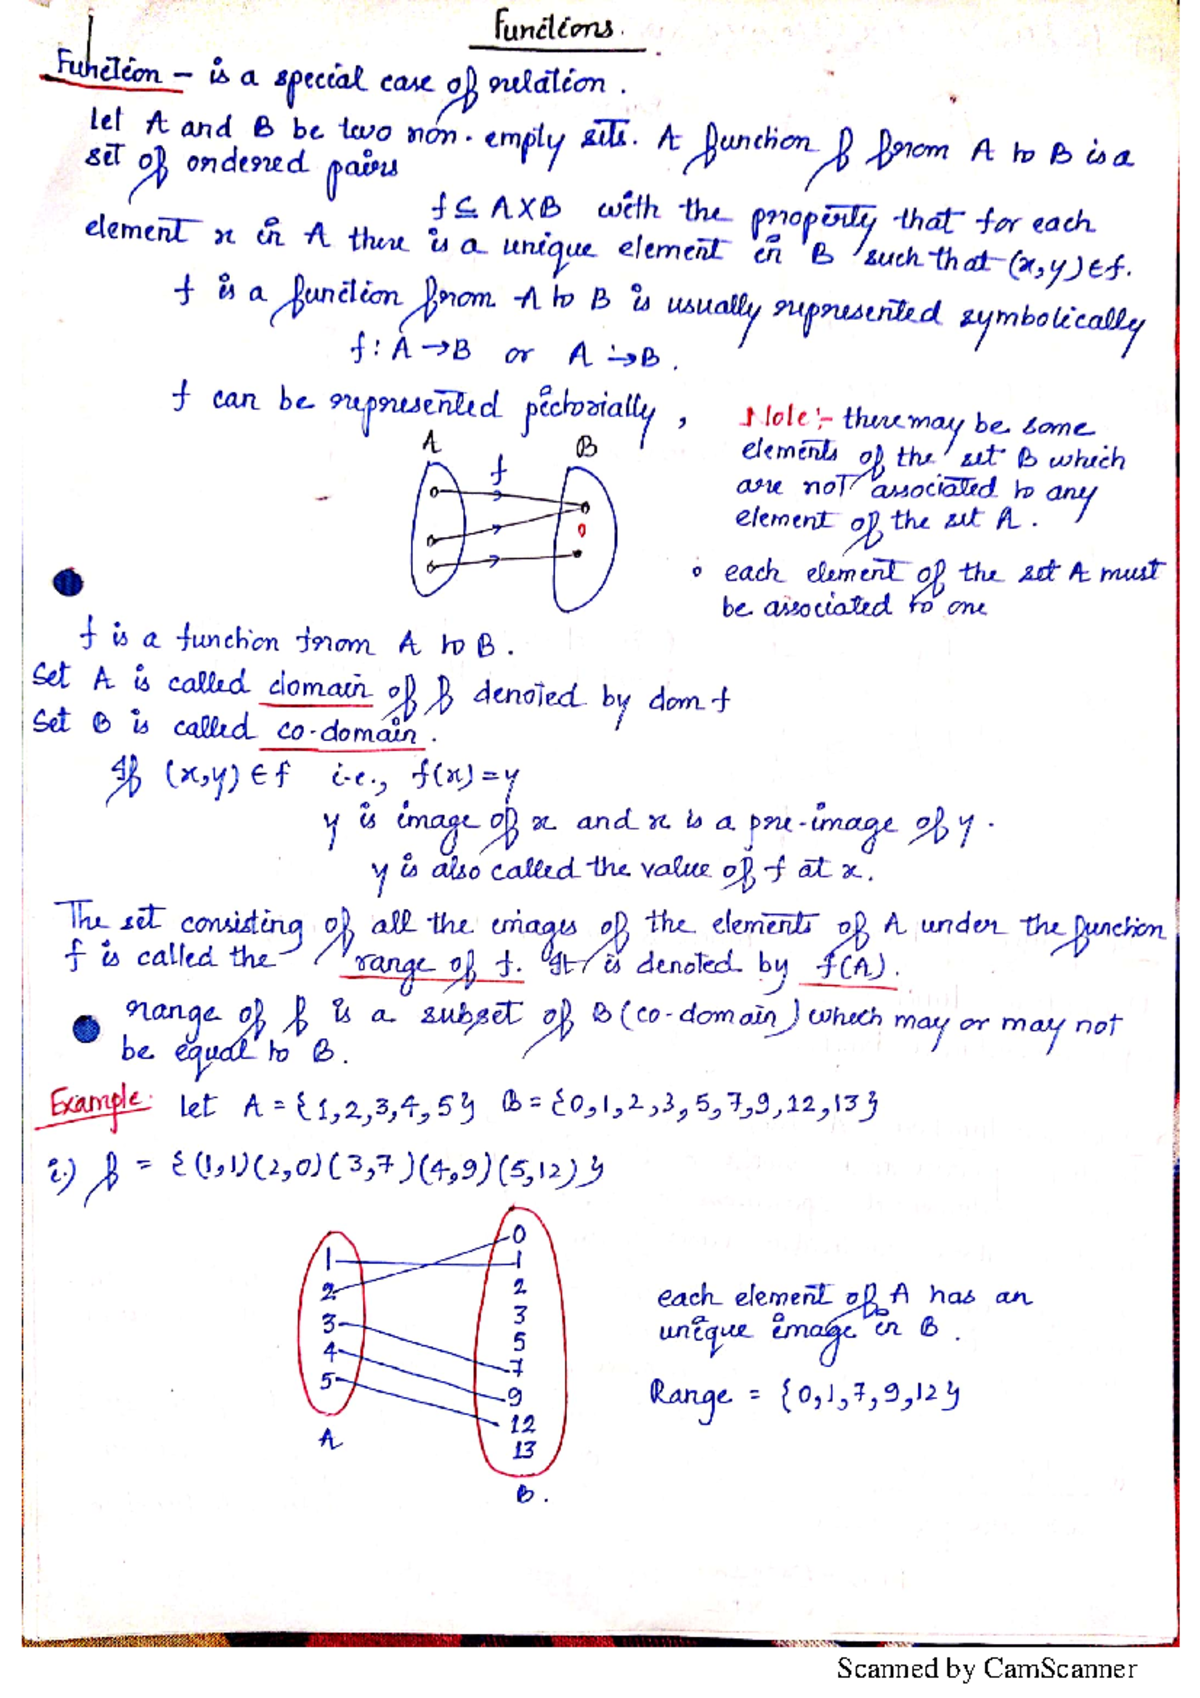 Functions.
Function - is a special case of relation.
let A and B be two non-empty sets. A function f from A to B is a
set of ordered pairs
f ⊆ A X B with the property that for each
element x in A there is a unique element in B such that (x,y) ∈ f.
f is a function from A to B is usually represented symbolically
f : A → B or A → B.
f can be represented pictorially,
Note :- there may be some
elements of the set B which
are not associated to any
element of the set A.
A f B
each element of the set A must
be associated to one
f is a function from A to B.
Set A is called domain of f denoted by dom f
Set B is called co-domain.
If (x,y) ∈ f i.e., f(x) = y
y is image of x and x is a pre-image of y.
y is also called the value of f at x.
The set consisting of all the images of the elements of A under the function
f is called the range of f. It is denoted by f(A).
range of f is a subset of B (co-domain) which may or may not
be equal to B.
Example: let A = {1,2,3,4,5} B = {0,1,2,3,5,7,9,12,13}
i.) f = {(1,1)(2,0)(3,7)(4,9)(5,12)}
1
2
3
4
5
A
0
1
2
3
5
7
9
12
13
B.
each element of A has an
unique image in B.
Range = {0,1,7,9,12}
Scanned by CamScanner